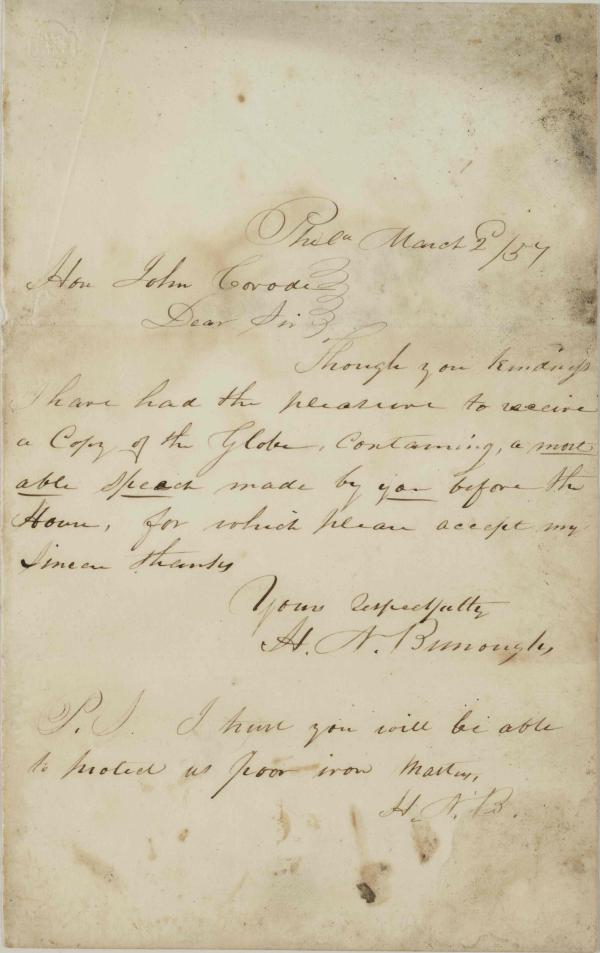 Phila March 2/57
Hon John Covode
Dear Sir
Though you kindness
I have had the pleasure to receive
a Copy of the Globe, Containing, a most
able speech made by you before the
House, for which please accept my
Sincere thanks
Yours respectfully
H. N. Burroughs
P.S. I trust you will be able
to protect us poor iron Masters,
H. N. B.